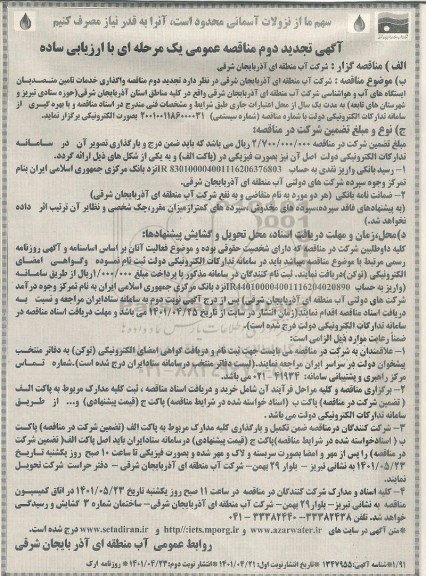 سهم ما از نزولات آسمانی محدود است، آنرا به قدر نیاز مصرف کنیم
آگهی تجدید دوم مناقصه عمومی یک مرحله ای با ارزیابی ساده
الف ) مناقصه گزار : شرکت آب منطقه ای آذربایجان شرقی
ب) موضوع مناقصه : شرکت آب منطقه ای آذربایجان شرقی در نظر دارد تجدید دوم مناقصه واگذاری خدمات تامین متصدیان
ایستگاه های آب و هواشناسی شرکت آب منطقه ای آذربایجان شرقی واقع در کلیه مناطق استان آذربایجان شرقی(حوزه ستادی تبریز و
شهرستان های تابعه) به مدت یک سال از محل اعتبارات جاری طبق شرایط و مشخصات فنی مندرج در اسناد مناقصه و با بهره گیری از سامانه
تدارکات الکترونیکی دولت با شماره مناقصه (شماره سیستمی) ۲۰۰۱۰۰۱۱۸۶۰۰۰۰۳۱ بصورت الکترونیکی برگزار نماید.
ج) نوع و مبلغ تضمین شرکت در مناقصه:
مبلغ تضمین شرکت در مناقصه ۲/۷۰۰/۰۰۰/۰۰۰ ریال می باشد که باید ضمن درج و بارگذاری تصویر آن در سامانه
تدارکات الکترونیکی دولت اصل آن نیز بصورت فیزیکی در (پاکت الف) و به یکی از شکل های ذیل ارائه گردد.
۱- رسید بانکی واریز نقدی به حساب IR 830100004001116206376803نزد بانک مرکزی جمهوری اسلامی ایران بنام
تمرکز وجوه سپرده شرکت های دولتی آب منطقه ای آذربایجان شرقی.
۲- ضمانت نامه بانکی (هر دو مورد به نام متقاضی و به نفع شرکت آب منطقه ای آذربایجان شرقی)
(به پیشنهادهای فاقد سپرده،سپرده های مخدوش،سپرده های کمتر از میزان مقرر،چک شخصی و نظایر آن ترتیب اثر داده
نخواهد شد.)
د)محل،زمان و مهلت دریافت اسناد، محل تحویل و گشایش پیشنهادها:
کلیه داوطلبین شرکت در مناقصه که دارای شخصیت حقوقی بوده و موضوع فعالیت آنان بر اساس اساسنامه و آگهی روزنامه
رسمی مرتبط با موضوع مناقصه میباشد باید در سامانه تدارکات الکترونیکی دولت ثبت نام نموده و گواهی امضای
الکترونیکی (توکن)دریافت نمایند. ثبت نام کنندگان در سامانه مذکور با پرداخت مبلغ ۱/۰۰۰/۰۰۰ریال از طریق سامانه
(واریز به حساب IR440100004001116204020890نزد بانک مرکزی جمهوری اسلامی ایران به نام تمرکز وجوه درآمد
شرکت های دولتی آب منطقه ای آذربایجان شرقی) پس از درج آگهی نوبت دوم به سامانه ستادایران مراجعه و نسبت به
دریافت اسناد مناقصه اقدام نمایند(زمان انتشار در سایت از تاریخ ۱۴۰۱/۰۴/۲۵ می باشد و مهلت دریافت اسناد مناقصه در
سامانه تدارکات الکترونیکی دولت درج شده است).
ضمنا رعایت موارد ذیل الزامی است:
۱- علاقمندان به شرکت در مناقصه می بایست جهت ثبت نام و دریافت گواهی امضای الکترونیکی (توکن) به دفاتر منتخب
پیشخوان دولت در سراسر ایران مراجعه نمایند.(لیست دفاتر منتخب در سامانه ستادایران درج شده است).شماره تماس
مرکز راهبری و پشتیبانی سامانه: ۴۱۹۳۴ - ۰۲۱ می باشد.
۲- برگزاری مناقصه و کلیه مراحل فرآیند آن شامل خرید و دریافت اسناد مناقصه ، ثبت کلیه مدارک مربوط به پاکت الف
( تضمین شرکت در مناقصه) پاکت ب (اسناد خواسته شده در شرایط مناقصه) پاکت ج (قیمت پیشنهادی) و... از طریق
سامانه تدارکات الکترونیکی دولت می باشد .
۳- شرکت کنندگان درمناقصه ضمن تکمیل و بارگذاری کلیه مدارک مربوط به پاکت الف (تضمین شرکت در مناقصه) پاکت
ب ( اسنادخواسته شده در شرایط مناقصه)پاکت ج (قیمت پیشنهادی) درسامانه ستادایران باید اصل پاکت الف( تضمین شرکت
در مناقصه) را پس از مهر و امضا بصورت سربسته و لاک و مهر شده و بصورت فیزیکی تا ساعت ۱۰ صبح روز یکشنبه تاریخ
۱۴۰۱/۰۵/۲۳ به نشانی تبریز - بلوار ۲۹ بهمن- شرکت آب منطقه ای آذربایجان شرقی - دفتر حراست شرکت تحویل
نمایند.
۴- کلیه اسناد و مدارک شرکت کنندگان در مناقصه در ساعت ۱۱ صبح روز یکشنبه تاریخ ۱۴۰۱/۰۵/۲۳ در اتاق کمیسیون
مناقصه به نشانی تبریز- بلوار ۲۹ بهمن- شرکت آب منطقه ای آذربایجان شرقی- ساختمان شماره ۳ گشایش و رسیدگی
خواهد شد. تلفن ۳۳۳۸۲۴۳۸- ۳۳۳۸۲۴۴۰ - ۰۴۱
* متن آگهی در سایت های www.azarwater.ir و http//:iets.mporg.ir و www.setadiran.ir درج شده است.
روابط عمومی آب منطقه ای آذربایجان شرقی
۱/۹۱ *شناسه آگهی:۱۳۴۷۹۵۵ *تاریخ انتشار نوبت اول: ۱۴۰۱/۰۴/۲۱ *انتشار نوبت دوم:۱۴۰۱/۰۴/۲۳ *روزنامه ارک